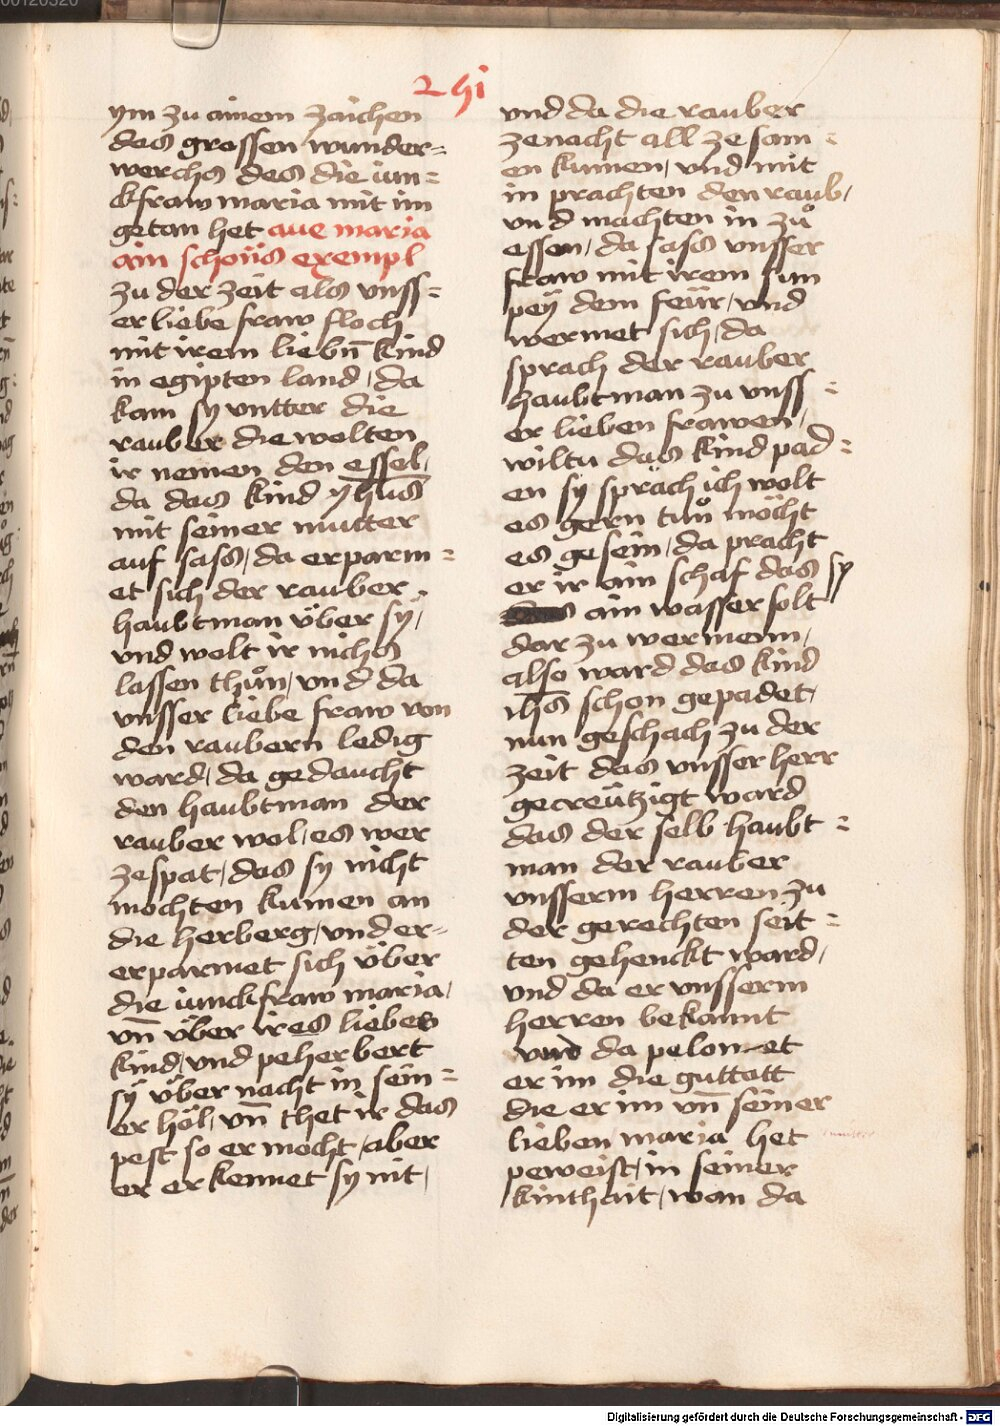 ym zu ainem zaichen
das grossen wunder=
werchs des die iun=
ckfraw maria mit im
getan het aue maria
ain schöns exempl
zu der zeit als vnss=
er liebe fraw floch
mit irem liebn̄ kind
in egipten land / da
kam sy vntter die
rauber die wolten
ir nemen den essel /
da das kind yhus
mit seiner mutter
auf sass / da erparm=
et sich der rauber
haubtman über sy /
vnd wolt ir nichs
lassen thůn / vnd da
vnsser liebe fraw von
den raubern ledig
ward / da gedaucht
den haubtman der
rauber wol / es wer
zespat / das sy nicht
mochten kumen an
die herberg / vnd er=
erparmet sich über
die iunckfraw maria /
vn̄ über ires liebes
kind / vnd peherbert
sÿ über nacht in sein=
er höl / vn̄ thet ir das
pest so er mocht / aber
er erkennet sy nit /
vnd da die rauber
zenacht all zesam=
en kumen / vnd mit
in prachten den raub /
vnd machten in zů
essen / da sass vnsser
fraw mit irem sun
peÿ dem feür / vnd
wermet sich / da
sprach der rauber
haubtman zu vnss=
er lieben frawen /
wiltu das kind pad=
en sy sprach ich wolt
es gern tuů möcht
es gesein / da pracht
er ir ain schaf das sy
ain wasser solt
dar zu wermenn /
also ward das kind
ihs schon gepadet /
nun geschach zu der
zeit das vnsser herr
gecreützigt ward
das der selb haubt=
man der rauber
vnsserm herren zu
der gerechten seit=
ten gehenckt ward /
vnd da er vnsserm
herren bekannt
vnd da pelonet
er im die guttatt
die er im vn̄ seiner
lieben maria het
peweist / in seiner
kinthait / wan da
Digitalisierung gefördert durch die Deutsche Forschungsgemeinschaft - DFG